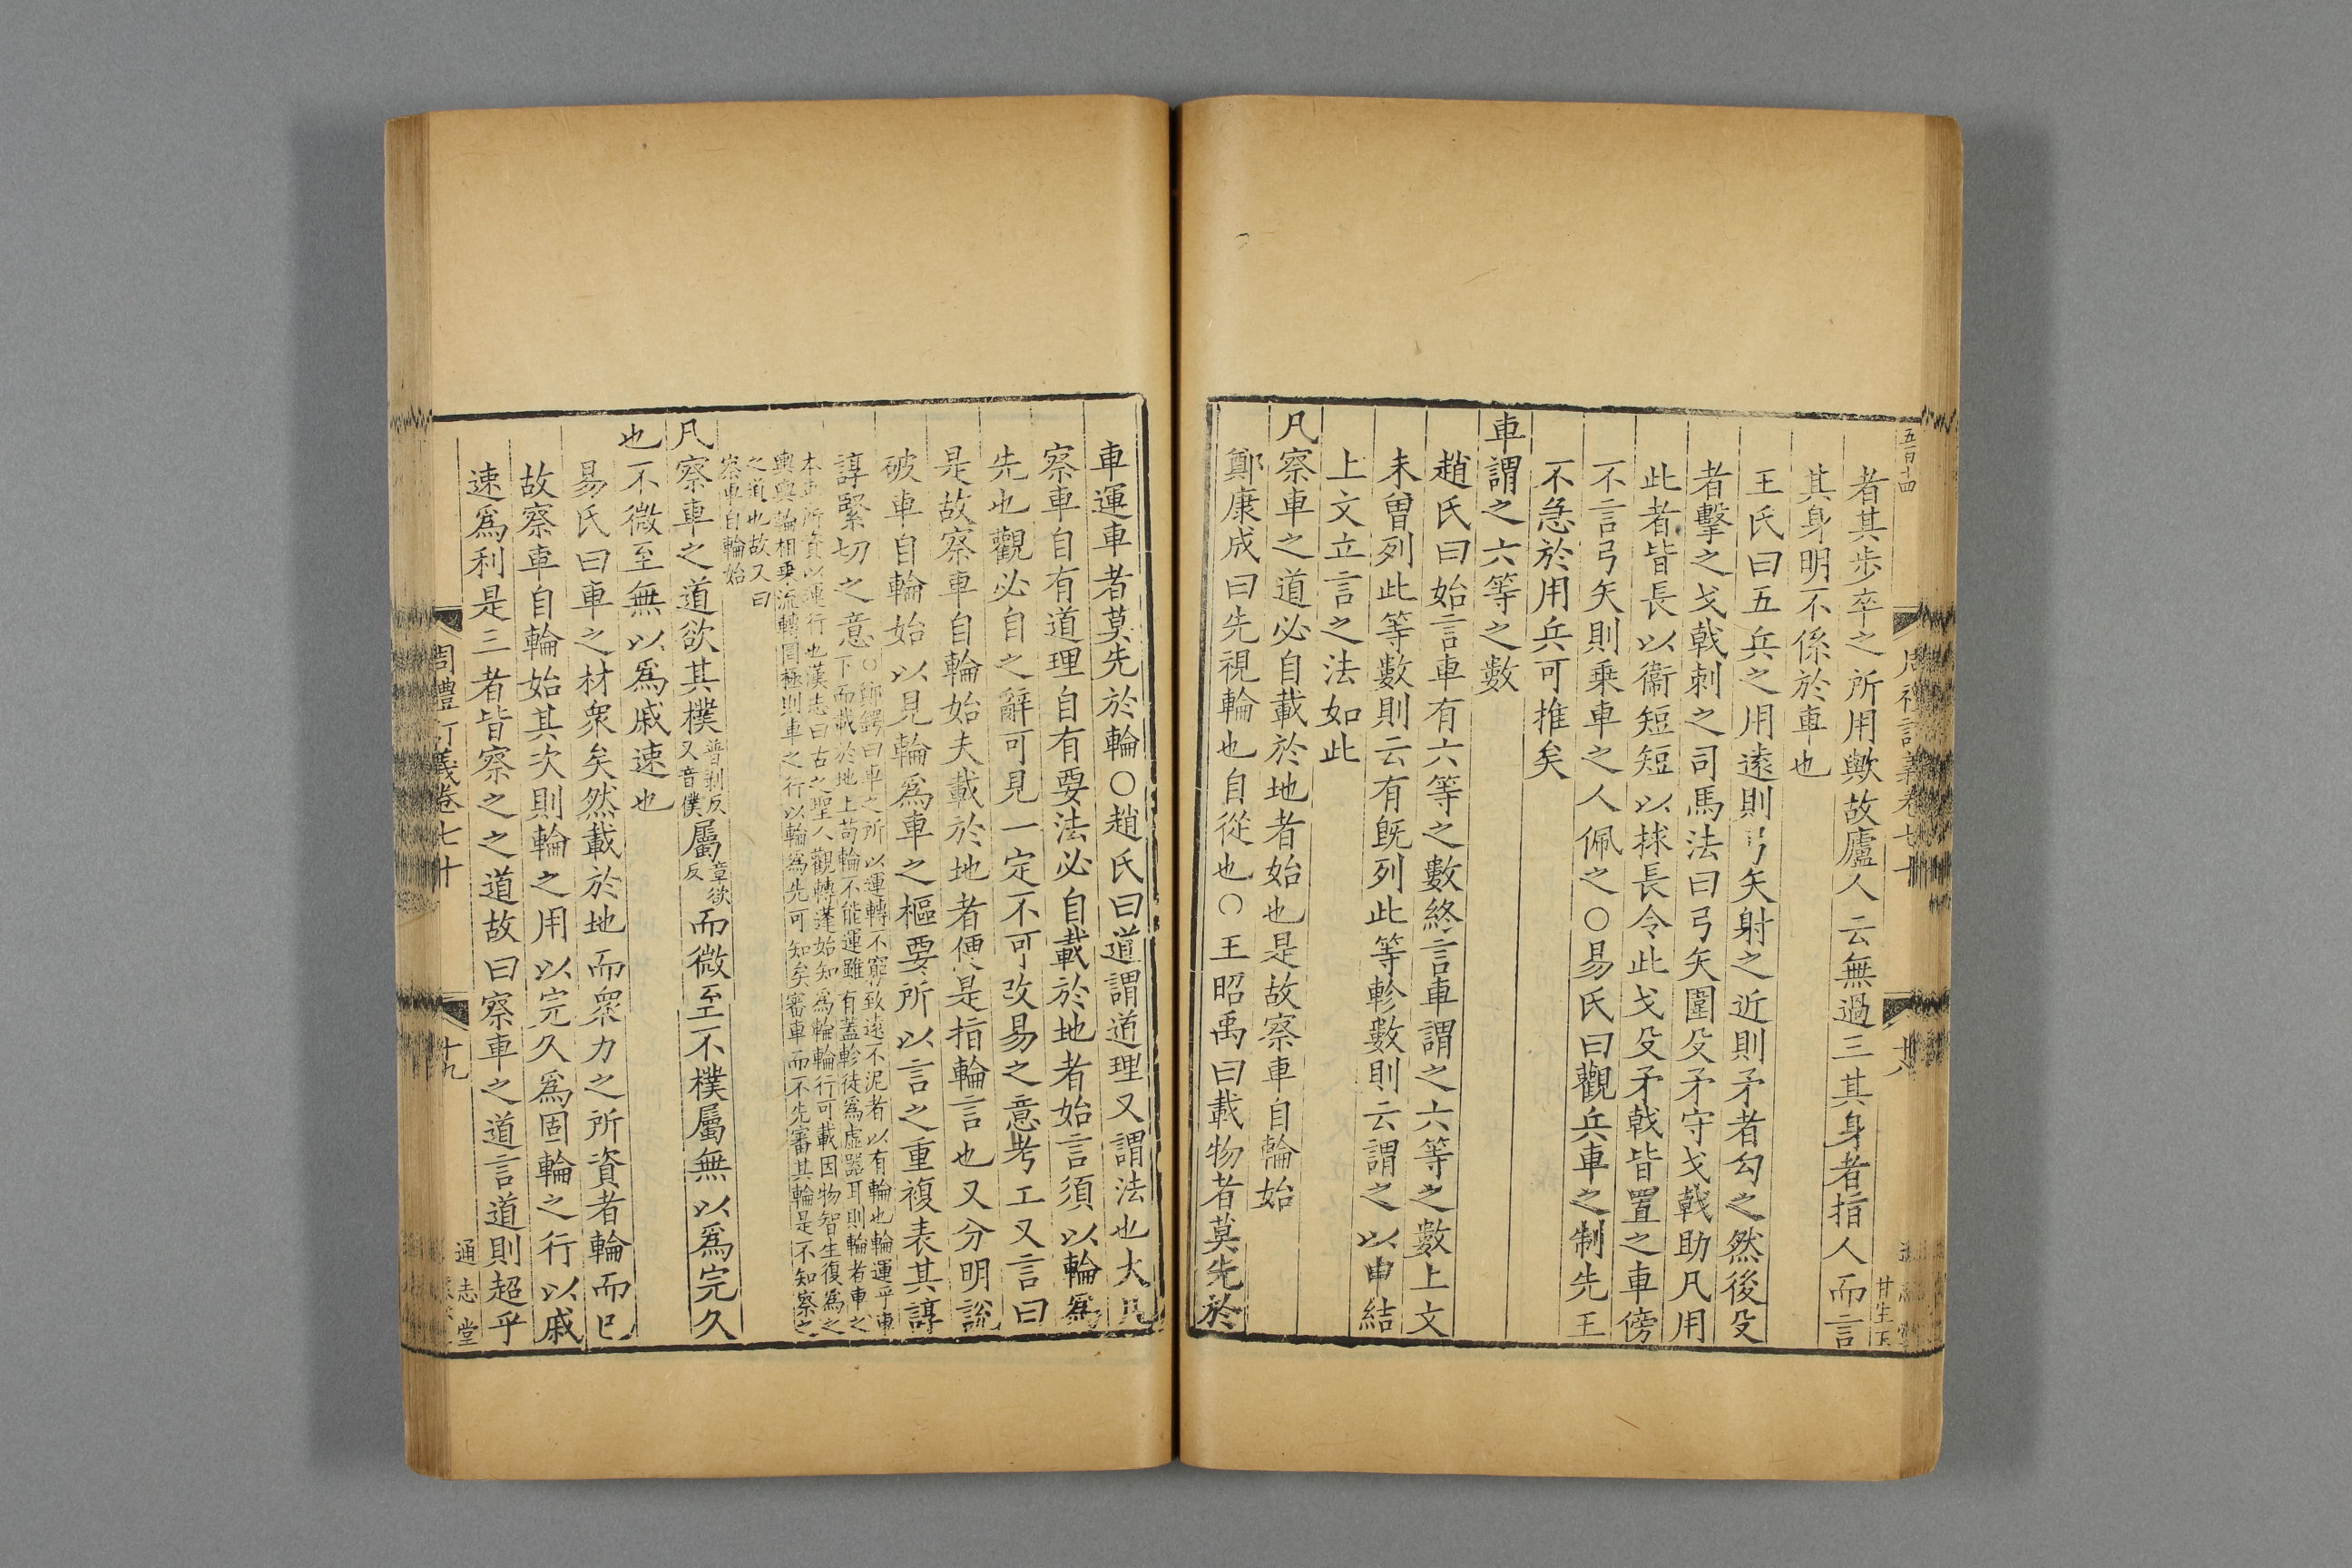 五百十四
者其步卒之所用歟故廬人云無過三其身者指人而言
其身明不係於車也
王氏曰五兵之用遠則弓矢射之近則矛者勾之然後殳
者擊之戈戟刺之司馬法曰弓矢圍殳矛守戈戟助凡用
此者皆長以衞短短以救長令此戈殳矛戟皆置之車傍
不言弓矢則乗車之人佩之○易氏曰觀兵車之制先王
不急於用兵可推矣
車謂之六等之數
趙氏曰始言車有六等之數終言車謂之六等之數上文
未曽列此等數則云有旣列此等軫數則云謂之以申結
上文立言之法如此
凡察車之道必自載於地者始也是故察車自輪始
鄭康成曰先視輪也自從也○王昭禹曰載物者莫先於
車運車者莫先於輪○趙氏曰道謂道理又謂法也大凡
察車自有道理自有要法必自載於地者始言須以輪爲
先也觀必自之辭可見一定不可改易之意考工又言曰
是故察車自輪始夫載於地者便是指輪言也又分明說
破車自輪始以見輪爲車之樞要所以言之重複表其諄
諄緊切之意○鄭鍔曰車之所以運轉不窮致遠不泥者以有輪也輪運乎車
下而載於地上苟輪不能運雖有蓋軫徒爲虛器耳則輪者車之
本車所資以運行也漢志曰古之聖人觀轉蓬始知爲輪輪行可載因物智生復爲之
輿輿輪相乗流轉罔極則車之行以輪爲先可知矣審車而不先審其輪是不知察之
之道也故又曰
察車自輪始
凡察車之道欲其樸普剥反又音僕屬章欲反而微至不樸屬無以爲完久
也不微至無以爲戚速也
易氏曰車之材衆矣然載於地而衆力之所資者輪而巳
故察車自輪始其次則輪之用以完久爲固輪之行以戚
速爲利是三者皆察之之道故曰察車之道言道則超乎
周禮訂義卷七十
十九
通志堂